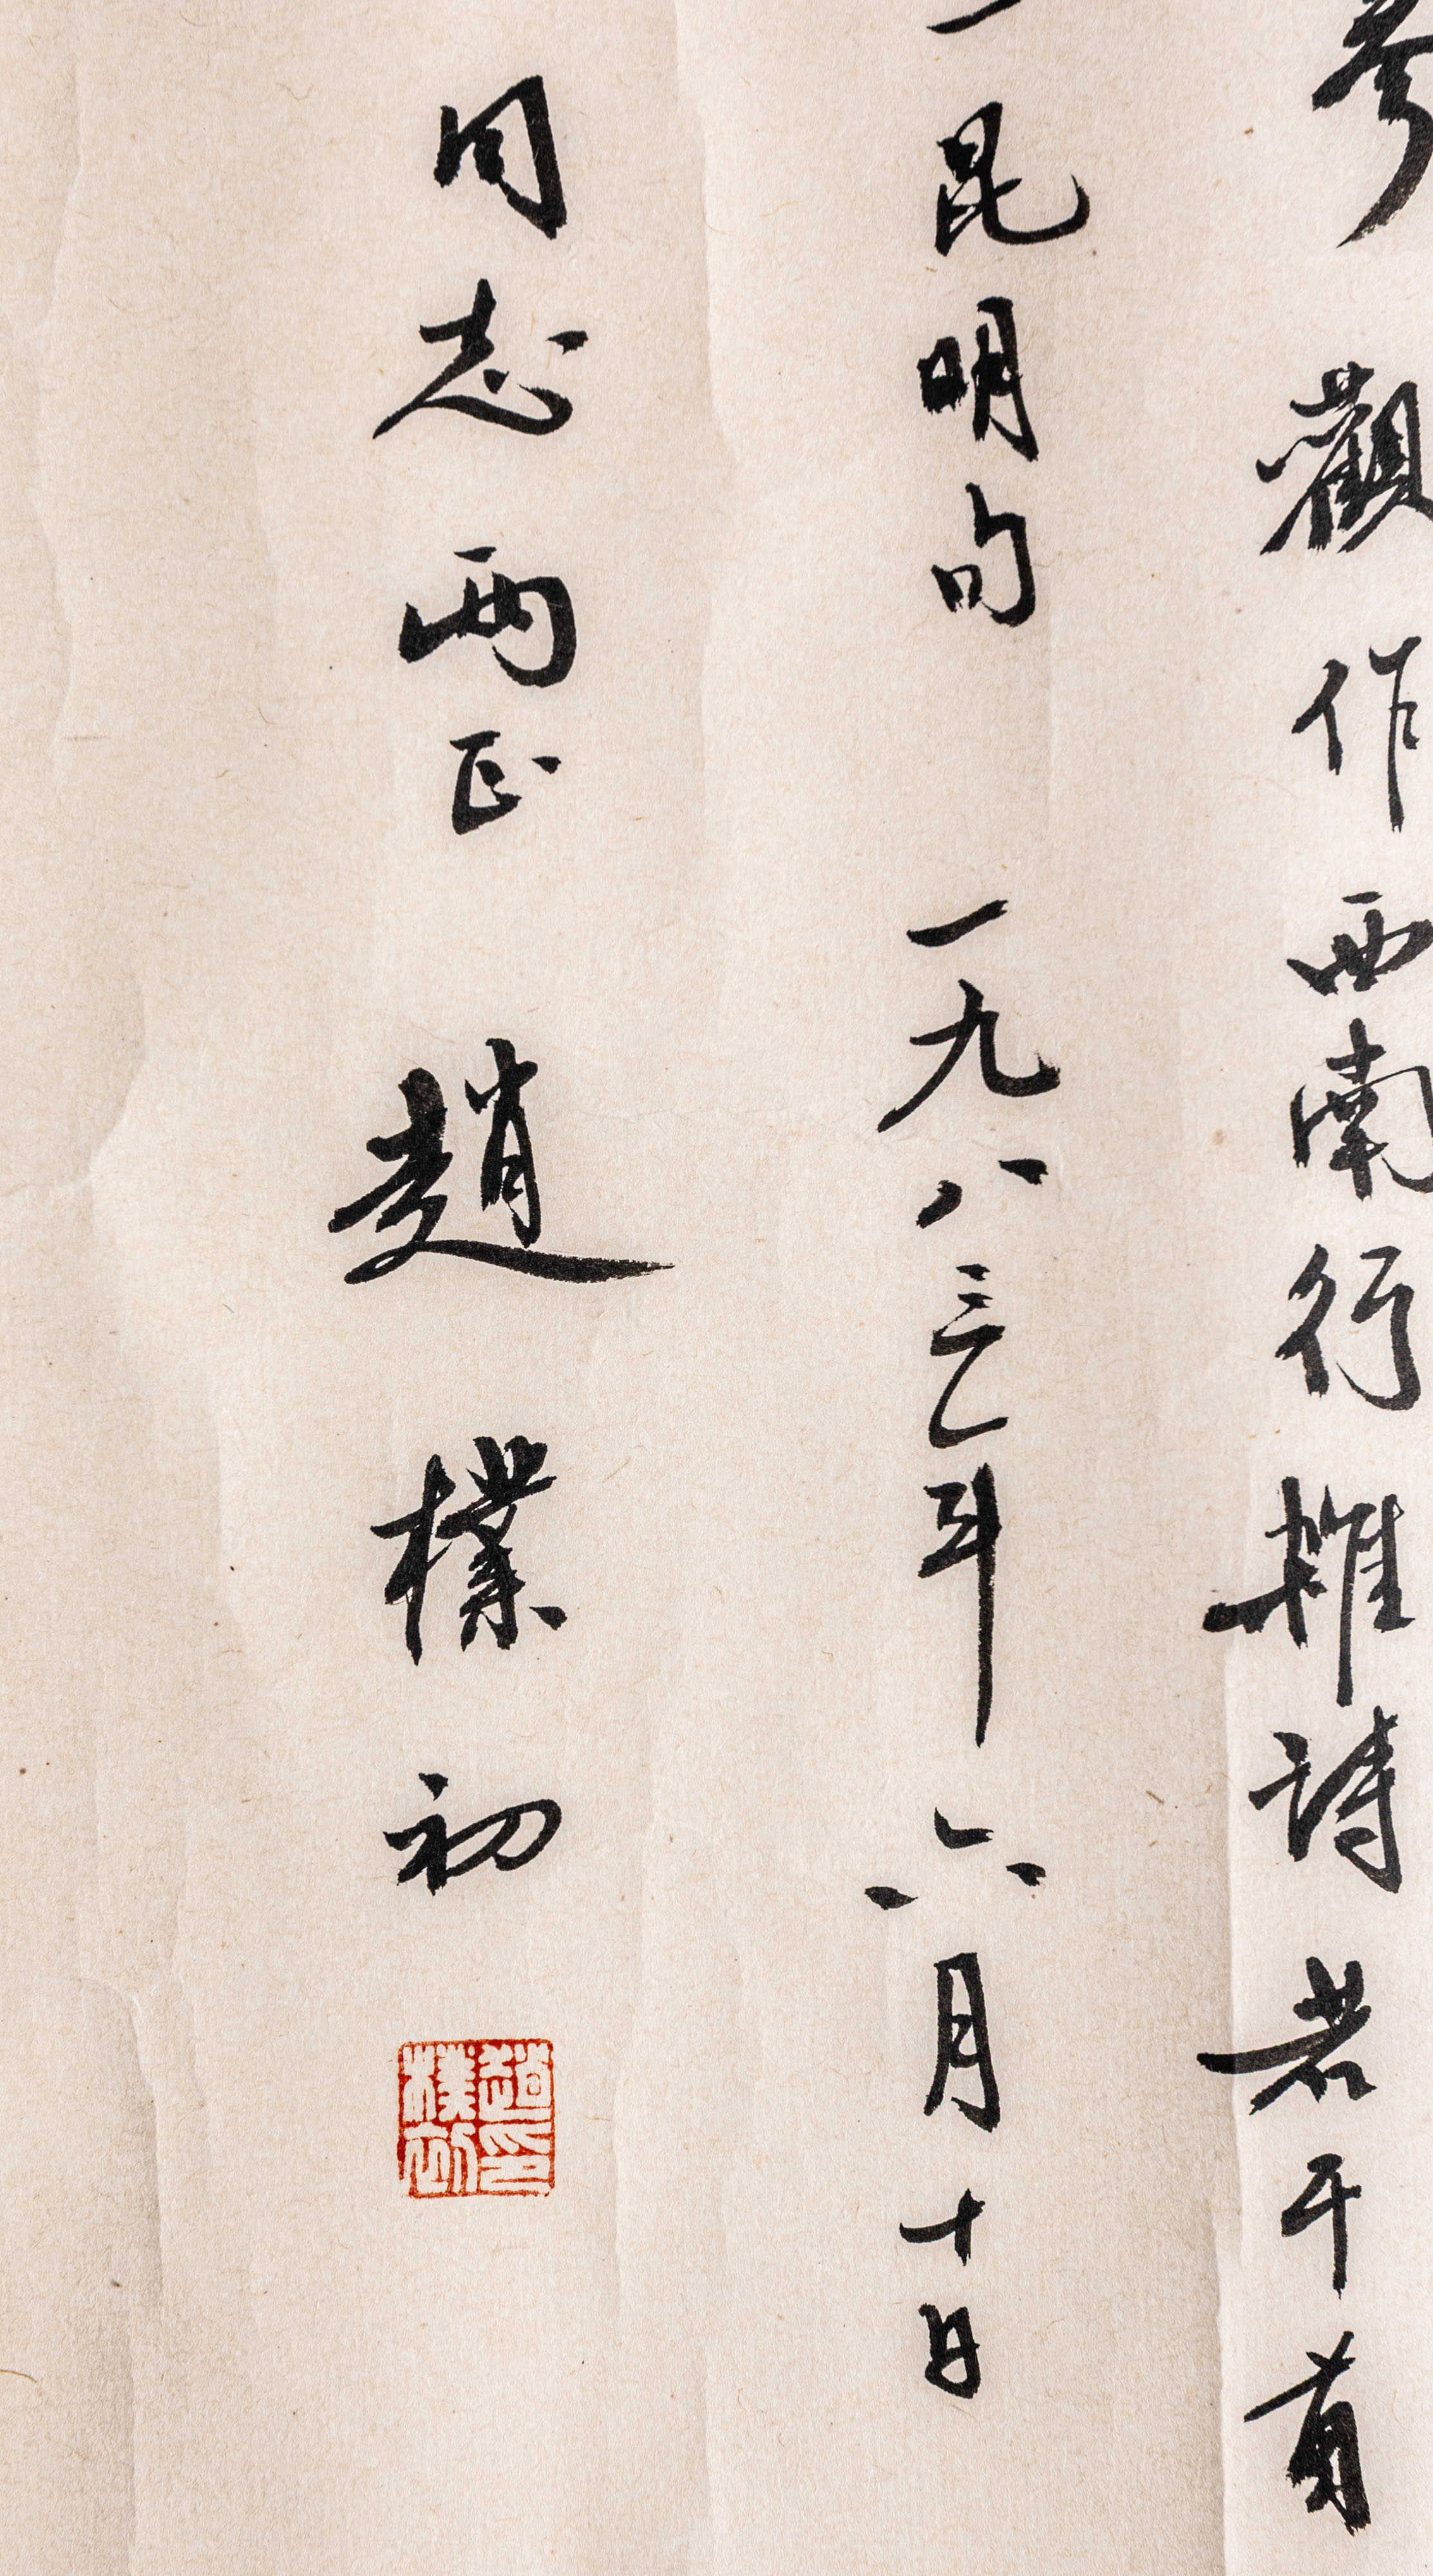 參觀作西南行雜詩若干首
昆明句 一九八三年六月十日
同志兩正 趙樸初
趙印樸初